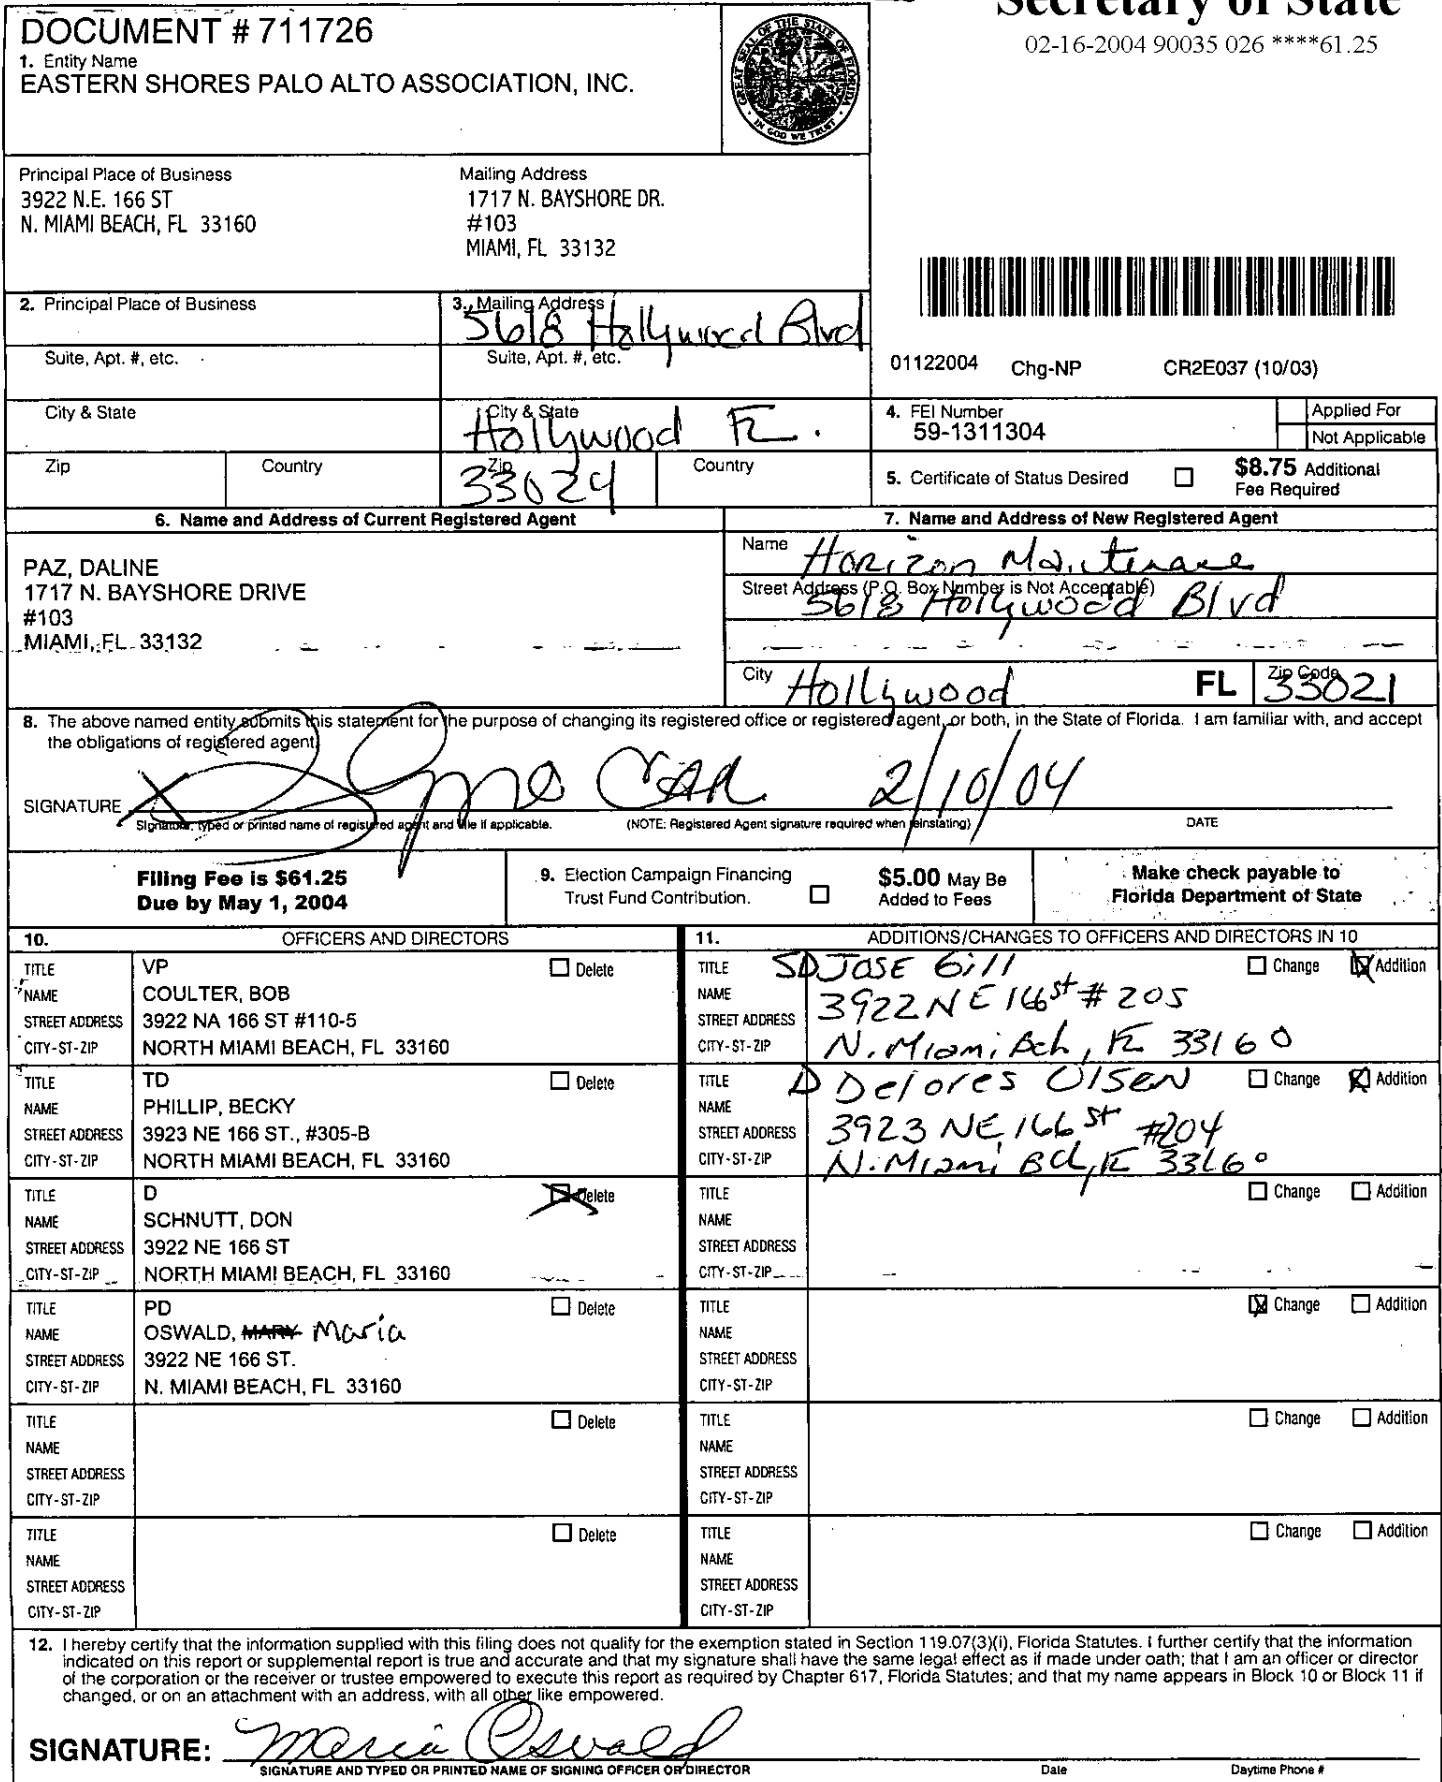 Secretary of State
02-16-2004 90035 026 ****61.25
DOCUMENT # 711726
1. Entity Name
EASTERN SHORES PALO ALTO ASSOCIATION, INC.
GREAT SEAL OF THE STATE OF FLORIDA
IN GOD WE TRUST
Principal Place of Business
3922 N.E. 166 ST
N. MIAMI BEACH, FL 33160
Mailing Address
1717 N. BAYSHORE DR.
#103
MIAMI, FL 33132
2. Principal Place of Business
3. Mailing Address
5618 Hollywood Blvd
Suite, Apt. #, etc.
Suite, Apt. #, etc.
01122004 Chg-NP CR2E037 (10/03)
City & State
City & State
Hollywood FL.
4. FEI Number
59-1311304
Applied For
Not Applicable
Zip
Country
Zip
33024
Country
5. Certificate of Status Desired
$8.75 Additional
Fee Required
6. Name and Address of Current Registered Agent
PAZ, DALINE
1717 N. BAYSHORE DRIVE
#103
MIAMI, FL 33132
7. Name and Address of New Registered Agent
Name Horizon
Street Address (P.O. Box Number is Not Acceptable)
5618 Hollywood Blvd
City Hollywood FL Zip Code 33021
8. The above named entity submits this statement for the purpose of changing its registered office or registered agent, or both, in the State of Florida. I am familiar with, and accept
the obligations of registered agent.
SIGNATURE 2/10/04
Signature, typed or printed name of registered agent and title if applicable. (NOTE: Registered Agent signature required when reinstating) DATE
Filing Fee is $61.25
Due by May 1, 2004
9. Election Campaign Financing
Trust Fund Contribution.
$5.00 May Be
Added to Fees
Make check payable to
Florida Department of State
10. OFFICERS AND DIRECTORS
11. ADDITIONS/CHANGES TO OFFICERS AND DIRECTORS IN 10
TITLE VP Delete
NAME COULTER, BOB
STREET ADDRESS 3922 NA 166 ST #110-5
CITY-ST-ZIP NORTH MIAMI BEACH, FL 33160
TITLE SD JOSE Gill Change Addition
NAME
STREET ADDRESS 3922 NE 166 st # 205
CITY-ST-ZIP N. Miami Bch, FL 33160
TITLE TD Delete
NAME PHILLIP, BECKY
STREET ADDRESS 3923 NE 166 ST., #305-B
CITY-ST-ZIP NORTH MIAMI BEACH, FL 33160
TITLE D Delores OlSEN Change Addition
NAME
STREET ADDRESS 3923 NE 166 St #204
CITY-ST-ZIP N. Miami Bch, FL 33160
TITLE D Delete
NAME SCHNUTT, DON
STREET ADDRESS 3922 NE 166 ST
CITY-ST-ZIP NORTH MIAMI BEACH, FL 33160
TITLE Change Addition
NAME
STREET ADDRESS
CITY-ST-ZIP
TITLE PD Delete
NAME OSWALD, MARY Maria
STREET ADDRESS 3922 NE 166 ST.
CITY-ST-ZIP N. MIAMI BEACH, FL 33160
TITLE Change Addition
NAME
STREET ADDRESS
CITY-ST-ZIP
TITLE Delete
NAME
STREET ADDRESS
CITY-ST-ZIP
TITLE Change Addition
NAME
STREET ADDRESS
CITY-ST-ZIP
TITLE Delete
NAME
STREET ADDRESS
CITY-ST-ZIP
TITLE Change Addition
NAME
STREET ADDRESS
CITY-ST-ZIP
12. I hereby certify that the information supplied with this filing does not qualify for the exemption stated in Section 119.07(3)(i), Florida Statutes. I further certify that the information
indicated on this report or supplemental report is true and accurate and that my signature shall have the same legal effect as if made under oath; that I am an officer or director
of the corporation or the receiver or trustee empowered to execute this report as required by Chapter 617, Florida Statutes; and that my name appears in Block 10 or Block 11 if
changed, or on an attachment with an address, with all other like empowered.
SIGNATURE: Maria Oswald
SIGNATURE AND TYPED OR PRINTED NAME OF SIGNING OFFICER OR DIRECTOR Date Daytime Phone #